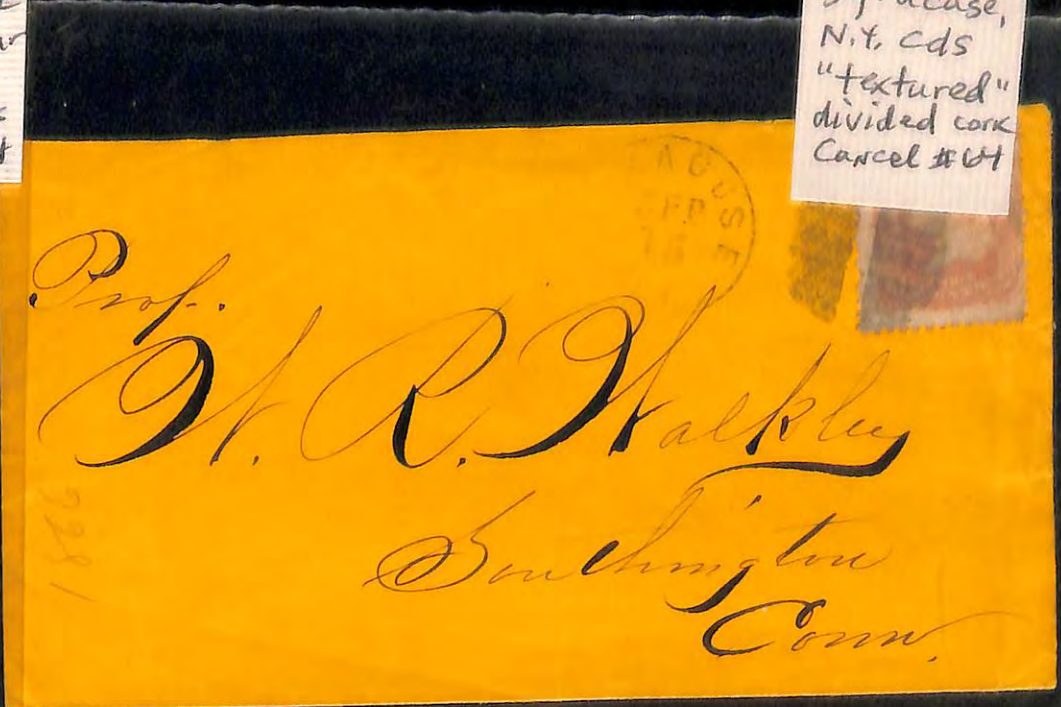 N.Y. cds
"textured"
divided cork
Cancel #64
ACUSE
SEP
Prof.
W. R. Walkley
Southington
Conn.
1866